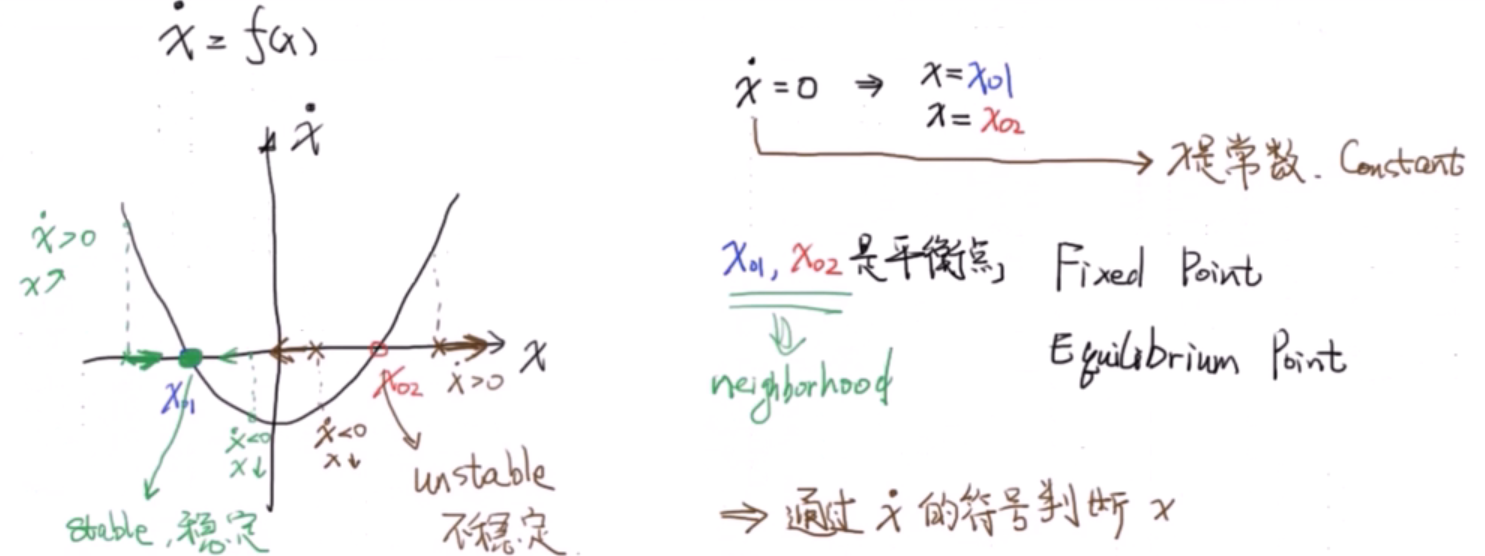 ẋ = f(x)
ẋ
ẋ>0
x↗
x
x₀₁
x₀₂
ẋ>0
ẋ<0
x↓
ẋ<0
x↓
stable, 稳定
unstable
不稳定
ẋ = 0 ⇒ x = x₀₁
x = x₀₂
x是常数. Constant
x₀₁, x₀₂ 是平衡点, Fixed Point
Equilibrium Point
neighborhood
⇒ 通过 ẋ 的符号判断 x